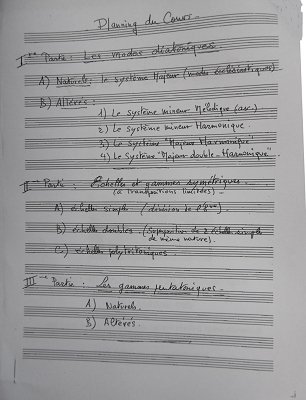 Planning du Cours.
Ière Partie : Les modes diatoniques.
A) Naturels : le système Majeur (modes ecclésiastiques)
B) Altérés :
1) Le système mineur Mélodique (asc.)
2) Le système mineur Harmonique.
3) Le système "Majeur Harmonique"
4) Le système "Majeur double-Harmonique".
II Partie : Echelles et gammes symétriques.
(à transpositions limitées).
A) échelles simples (division de l'8ve)
B) échelles doubles (Superposition de 2 échelles simples
de même nature).
C) échelles polytritoniques
III Partie : Les gammes pentatoniques.
A) Naturels.
B) Altérés.